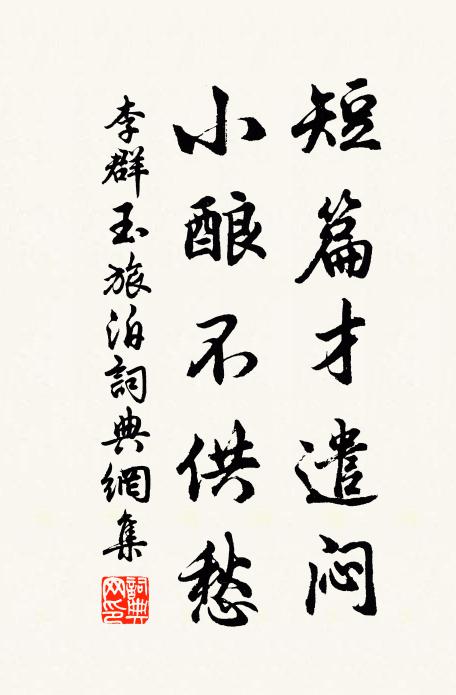 短篇才遣闷
小酿不供愁
李群玉旅泊詞典網集
詞典网印